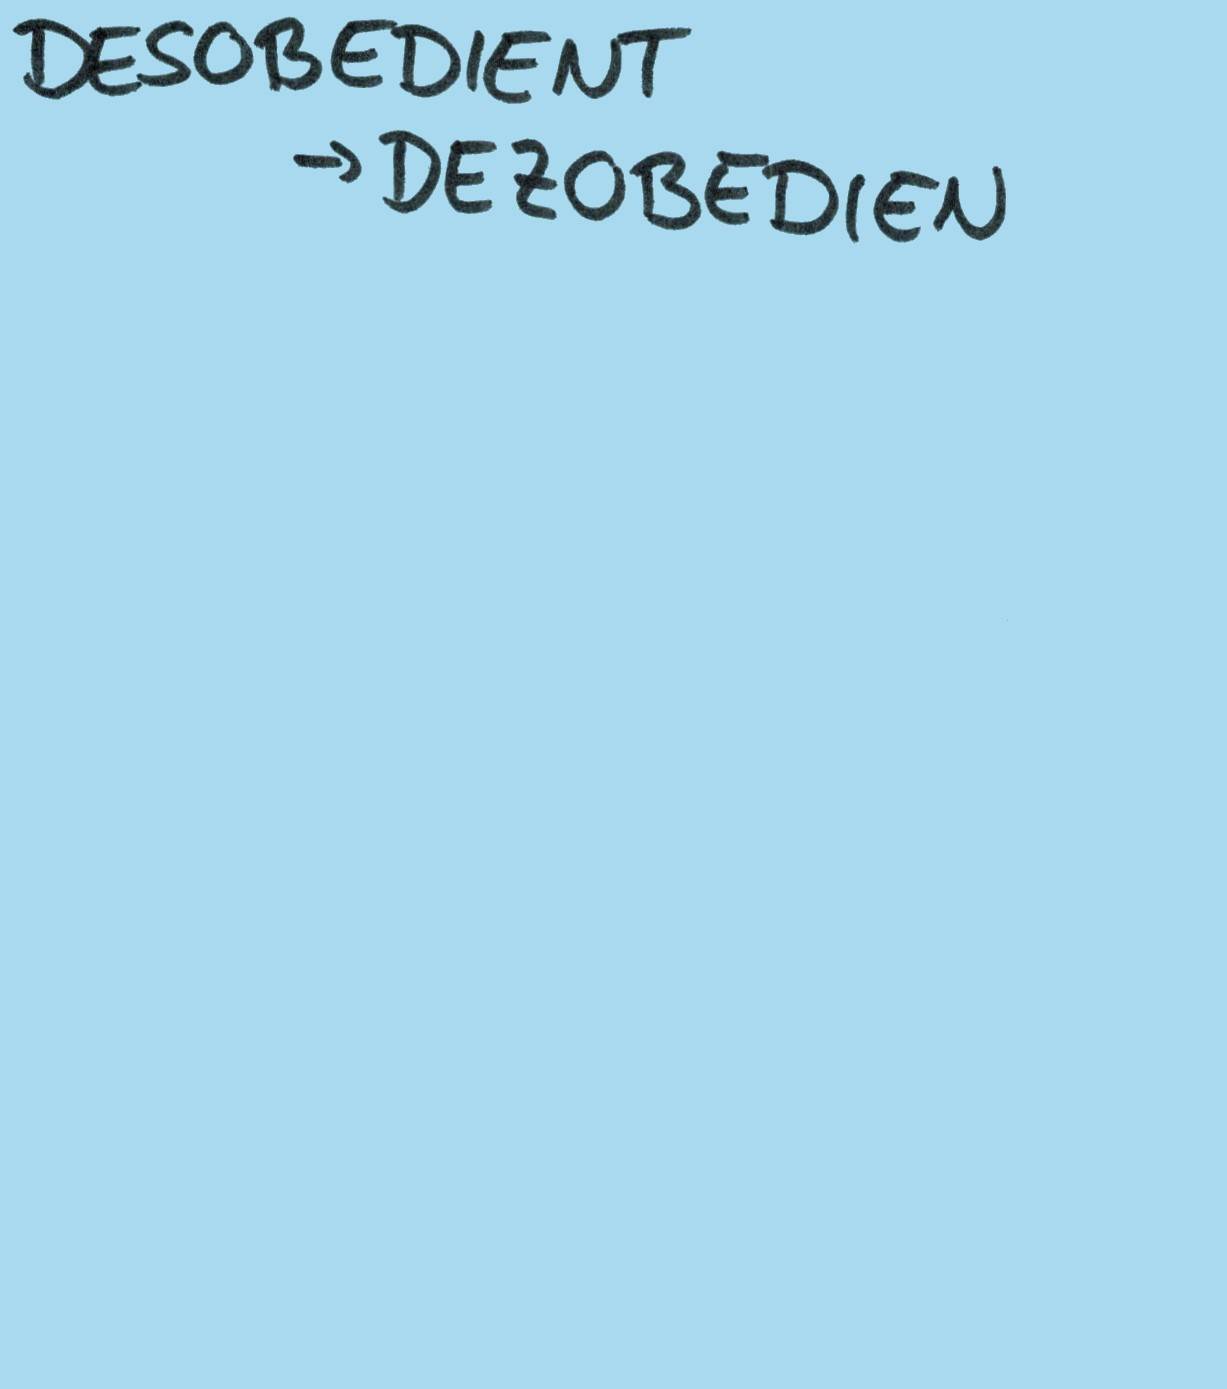 DESOBEDIENT
→ DEZOBEDIEN